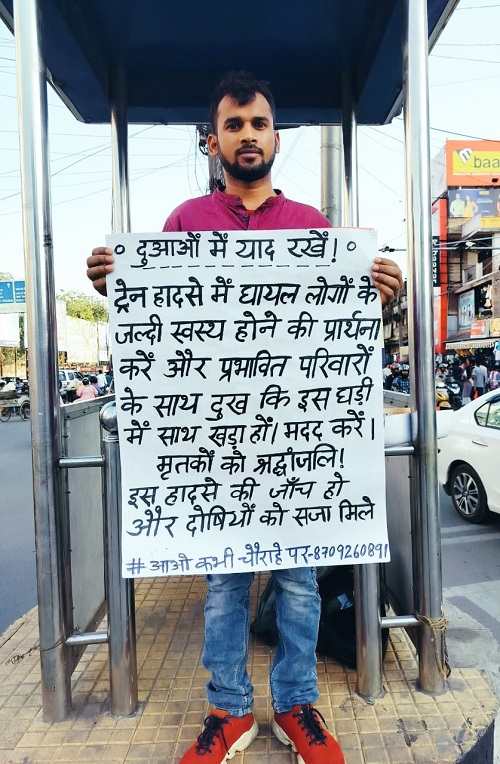 ० दुआओं में याद रखें! ०
ट्रेन हादसे में घायल लोगों के
जल्दी स्वस्थ होने की प्रार्थना
करें और प्रभावित परिवारों
के साथ दुख कि इस घड़ी
में साथ खड़ा हों। मदद करें।
मृतकों को श्रद्धांजलि!
इस हादसे की जाँच हो
और दोषियों को सजा मिले
#आओ कभी चौराहे पर-8709260891
baa